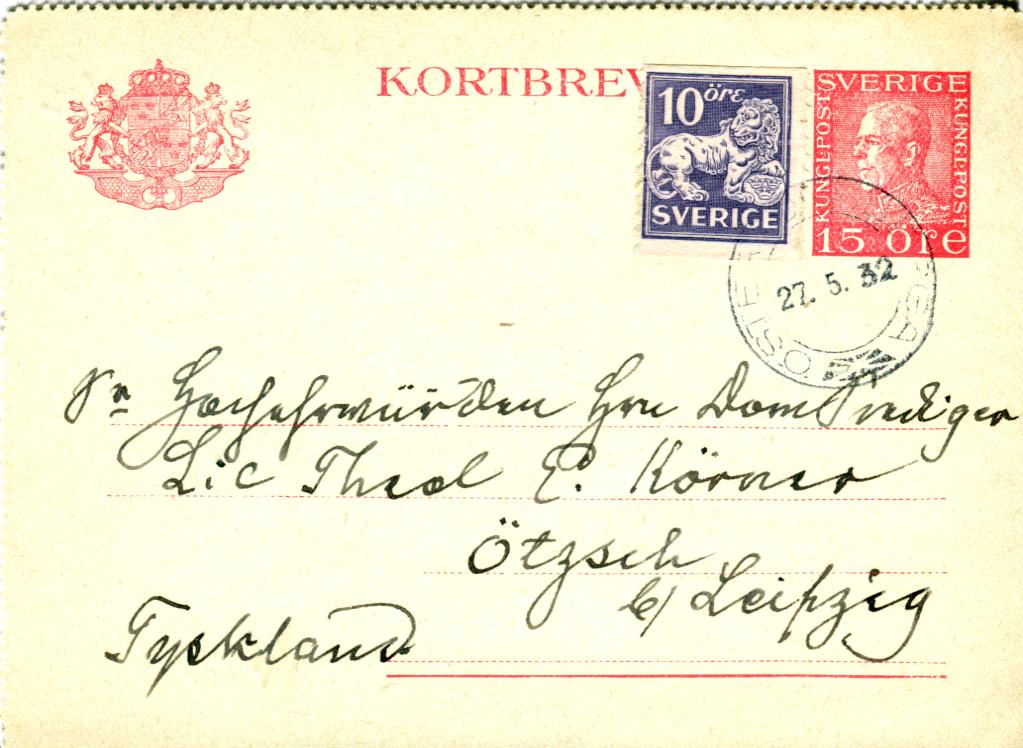 KORTBREV
10 öre
SVERIGE
SVERIGE
KUNGL·POST
KUNGL·POST
15 öre
27. 5. 32
Sr Hochehrwürden Hrn Domprediger
Lic Theol E. Körner
Ötzsch
b/ Leipzig
Tyskland